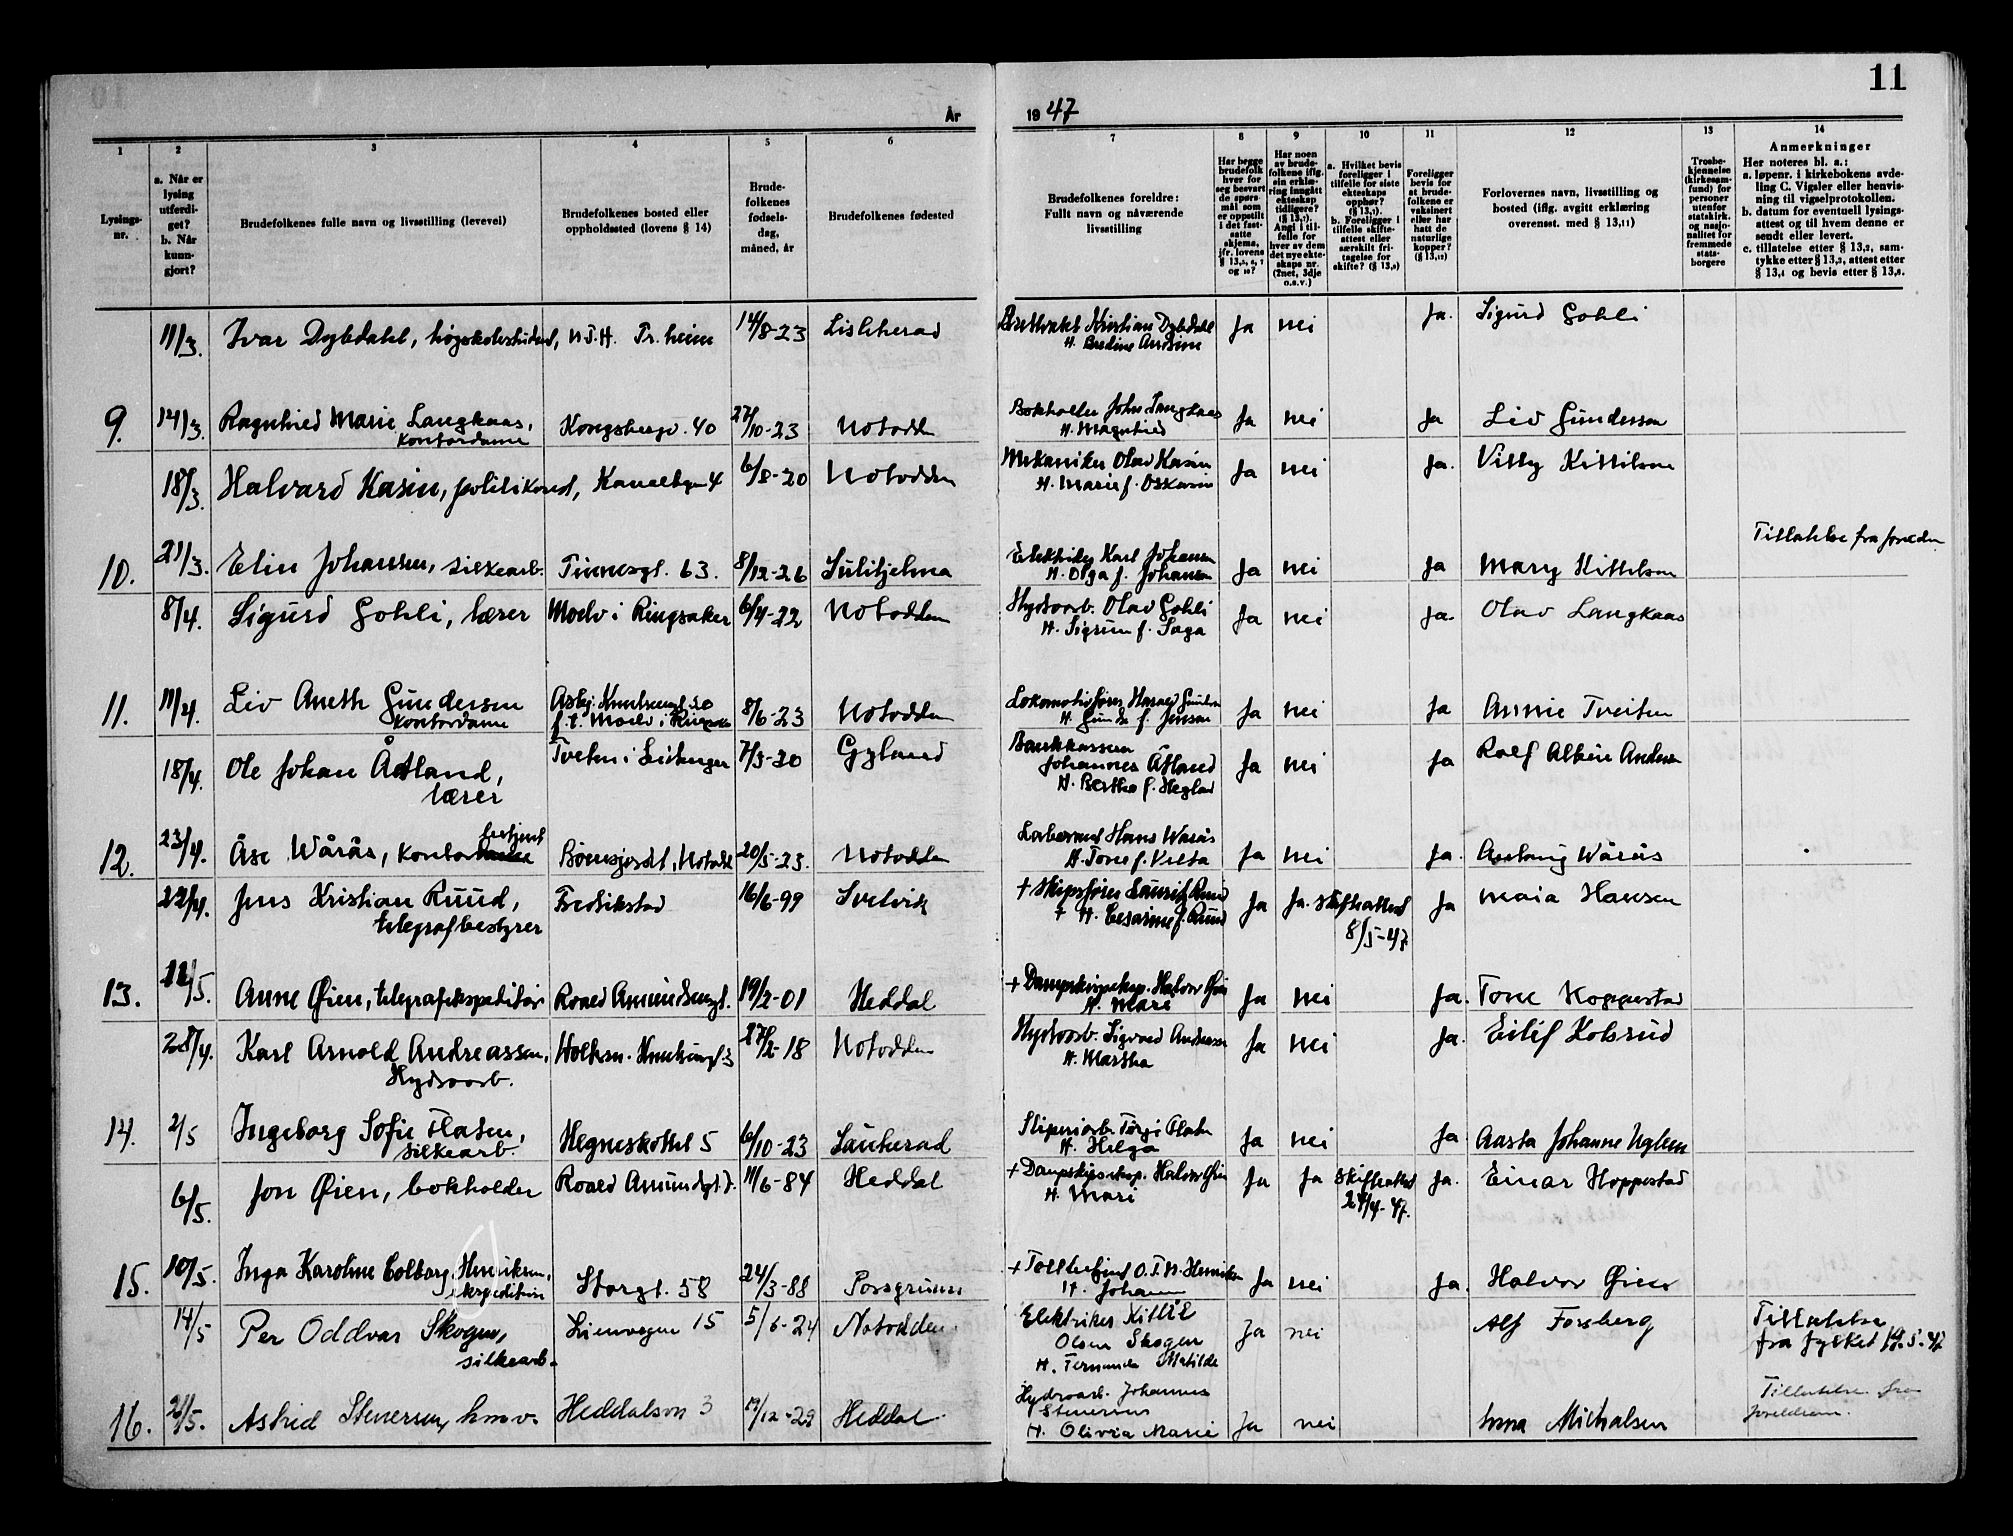 11
År
19 47
1
2
3
4
5
6
7
8
9
10
11
12
13
14
Lysings-
nr.
a. Når er
lysing
utferdi-
get?
b. Når
kunn-
gjort?
Brudefolkenes fulle navn og livsstilling (levevei)
Brudefolkenes bosted eller
oppholdssted (lovens § 14)
Brude-
folkenes
fødsels-
dag,
måned, år
Brudefolkenes fødested
Brudefolkenes foreldre:
Fullt navn og nåværende
livsstilling
Har begge
brudefolk
hver for
seg besvart
de spørs-
mål som
er oppstilt
i det fast-
satte
skjema,
jfr. lovens
Har noen
av brude-
folkene iflg.
sin erklæ-
ring inngått
ekteskap
tidligere?
(§ 13,7).
Angi i til-
felle for
hver av dem
det nye ekte-
skaps nr.
(2net, 3dje
o.s.v.)
a. Hvilket bevis
foreligger i
tilfelle for siste
ekteskaps
opphør?
(§ 13,7).
b. Foreligger i
tilfelle skifte-
attest eller
særskilt fri-
tagelse for
skifte? (§ 13,8)
Foreligger
bevis for
at brude-
folkene er
vaksinert
eller har
hatt de
naturlige
kopper?
(§ 13,12)
Forlovernes navn, livsstilling og
bosted (iflg. avgitt erklæring
overensst. med § 13,11)
Trosbe-
kjennelse
(kirkesam-
fund) for
personer
utenfor
statskirk.
og nasjo-
nalitet for
fremmede
stats-
borgere
Anmerkninger
Her noteres bl. a.:
a. løpenr. i kirkebokens avde-
ling C. Vigsler eller henvis-
ning til vigselprotokollen.
b. datum for eventuell lysings-
attest og til hvem denne er
sendt eller levert.
c. tillatelse etter § 13,2, sam-
tykke etter § 13,3, attest etter
§ 13,4 og bevis etter § 13,6.
11/3. Ivar Dybdahl, høgskolestudent, N.T.H. Tr.heim 14/8-23 Kristian Dybdahl Ja nei Ja. Sigurd Gohli
9. 14/3. Ragnhild Marie Langkaas, Kongsbergv. 40 27/10-23 Notodden Bokholder John Langkaas Ja nei Ja Liv Gundersen
kontordame H. Magnhild
18/3. Halvard Kasin, politikonst, 4 6/8-20 Notodden Mekaniker Olav Kasin Ja nei Ja. Kittilsen
H. Marie f.
Tillatelse fra foreldre
10. 21/3. Elin Johansen, silkearb. Tinnesgt. 63. 8/12-26 Sulitjelma Karl Johansen Ja nei Ja Mary Kittilsen
H. Olga f. Johansen
8/4. Sigurd Gohli, lærer Moelv i Ringsaker 6/4-22 Notodden Hydroarb. Olav Gohli Ja nei Ja. Olav Langkaas
H. Sigrun f. Saga
11. 11/4. Liv Aneth Gundersen 8/6-23 Notodden Lokomotivfører Harald Ja nei Ja Annie Tveiten
kontordame f. t. Moelv i H. f. Jensen
18/4. Ole Johan Åtland, Tveten i 7/3-20 Gyland Bankkasserer Ja nei Ja Rolf Andersen
lærer Johannes Åtland
H. Bertha f.
12. 23/4. Åse Wårås, kontorbetjent Notodd 20/5-23. Notodden Hans Wårås Ja nei Ja. Aslaug Wårås
H. Tone f.
22/4. Jens Kristian Ruud, Fredrikstad 16/6-99 Svelvik + Skipsfører Ruud Ja Ja. skifteattest Ja Maia Hansen
telegrafbestyrer + H. f. Ruud 8/5-47
13. /5. Anne Øien, telegrafekspeditør Roald Amundsensgt. 19/2-01 Heddal + Dampskipseksp. Halvor Øien Ja nei Ja. Tone Hoppestad
H. Mari
28/4. Karl Arnold Andreassen, Notodden Hydroarb. Sigvard Andreassen Ja nei Ja. Eilif Kolsrud
Hydroarb. H. Martha
14. 2/5 Ingeborg Sofie Flaten, 5 6/10-23 Sauherad Flaten Ja nei Ja Aasta Johanne Uglem
silkearb. H. Helga
6/5. Jon Øien, bokholder Roald Amundsgt. 11/6-84 Heddal + Dampskipseksp. Halvor Øien Ja Ja skifteattest Ja. Einar Hoppestad
H. Mari 24/4-47.
15. 10/5. Inga Karoline Colborg Henriksen, Storgt. 58 24/3-88 Porsgrunn + O. T. N. Henriksen Ja nei Ja. Halvor Øien
H. Johanne
14/5 Per Oddvar Skogen, Lienvegen 15 5/6-24 Notodden Elektriker Kittil Ja nei Alf Forsberg Tillatelse
silkearb. Olsen Skogen fra fylket
H. Fernanda Matilde
16. /5. Astrid Stenersen, Heddalsvn 3 /12-29 Heddal Hydroarb. Johannes Ja nei Anna Michalsen Tillatelse fra
Stenersen foreldrene.
H. Olivia Marie